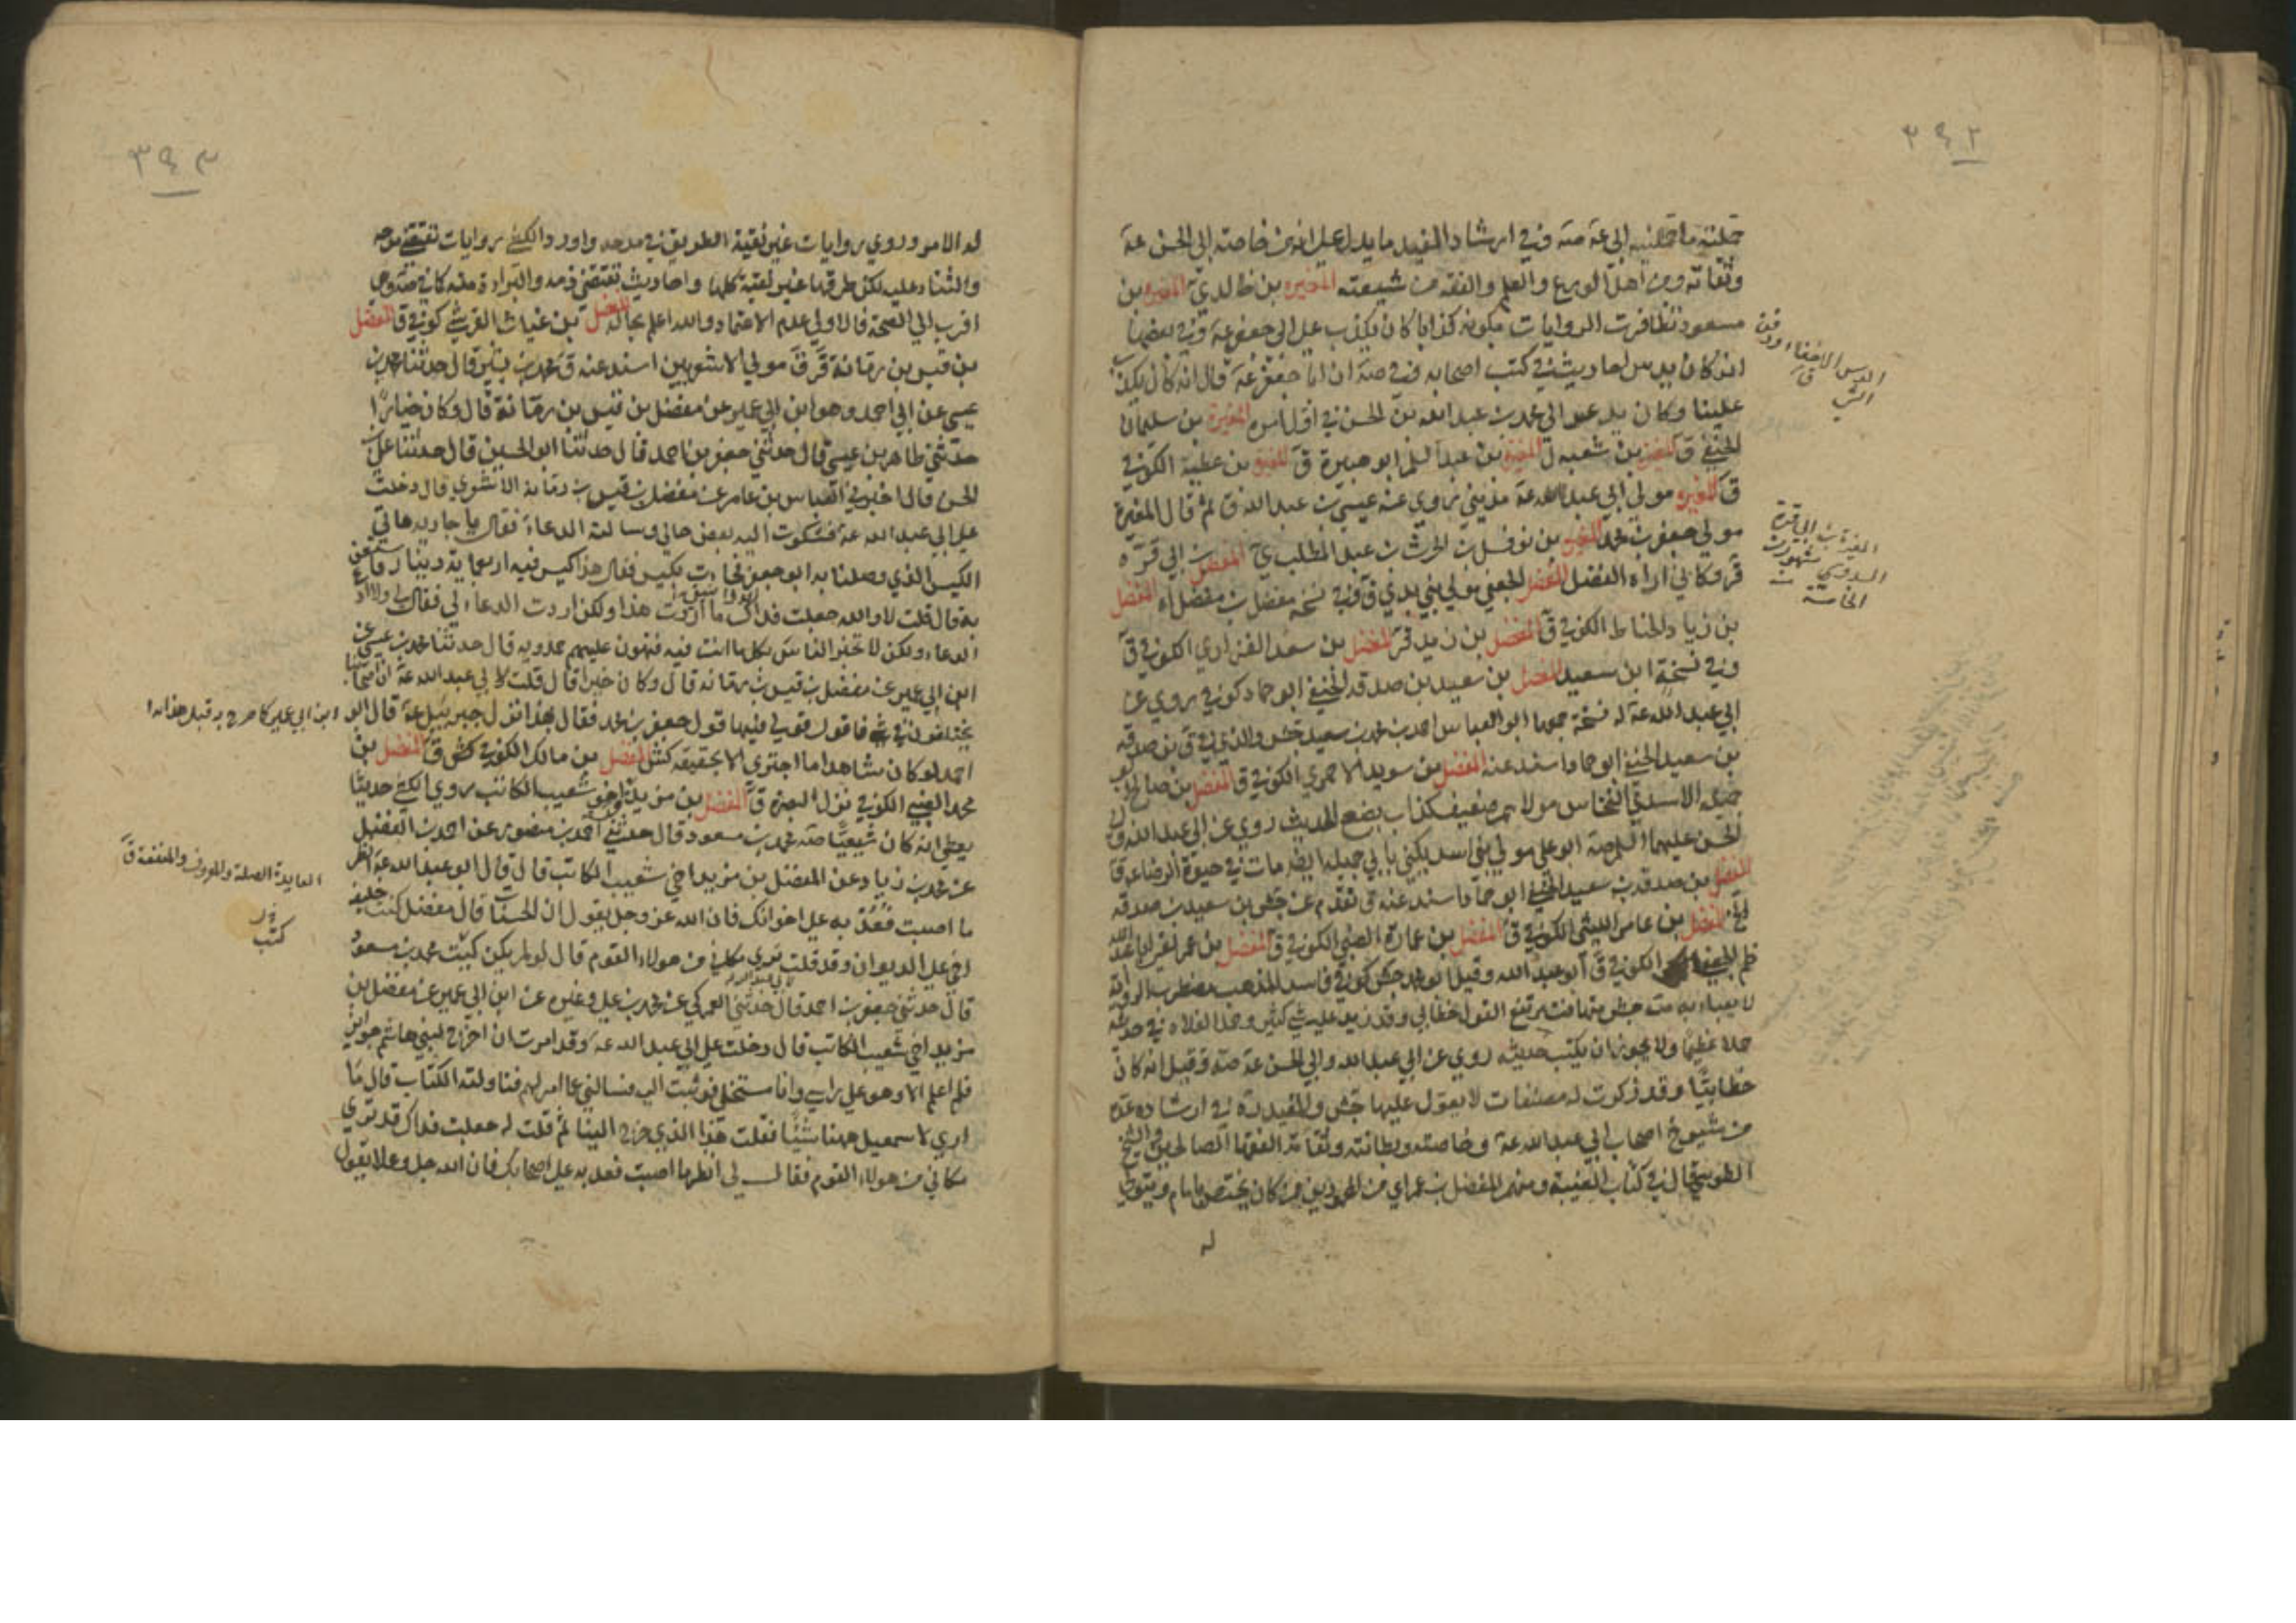 ٣٩٢
جملته ما حملنيه الى عة صه وفي ارشاد المفيد ما يدل على انه من خاصته ابي الحسن عة
وثقاته ومن اهل الورع والعلم والفقه من شيعته المغيره بن خالد ي المغيره بن
مسعود تظافرت الروايات بكونه كذابا كان يكذب على ابي جعفر عة وفي بعضها
انه كان يدس احاديث في كتب اصحابه وفي صه ان ابا جعفر عة قال انه كان يكذب
علينا وكان يدعو الى محمد بن عبد الله بن الحسن في اول امره المغيرة بن سليمان
الحنفي ق المغيرة بن شعبه ل المغيرة بن عبد السلم ابو هبيرة ق المغيرة بن عطية الكوفي
ق المغيره مولى ابي عبد الله عة مديني يروي عنه عيسى بن عبد الله ق ثم قال المغيرة
مولى جعفر بن محمد المغيرة بن نوفل بن الحرث بن عبد المطلب ي المفضل بن ابي قرة
ق وكاني اراه الفضل المفضل الجعفي مولى بني بدي ق وفي نسخة مفضل بن مفضل اه المفضل
بن زياد الحناط الكوفي ق المفضل بن زيد قر المفضل بن سعد الفزاري الكوفي ق
وفي نسخة ابن سعيد المفضل بن سعيد بن صدقه الحنفي ابو حماد كوفي يروي عن
ابي عبد الله عة له نسخة جمعها ابو العباس احمد بن محمد بن سعيد جش والذي في ق بن صدقه
بن سعيد الحنفي ابو حماد اسند عنه المفضل بن سويد الاحمري الكوفي ق المفضل بن صالح ابو
جميله الاسدي النخاس مولاهم ضعيف كذاب يضع الحديث روي عن ابي عبد الله وابي
الحسن عليهما السلم صه ابو علي مولى بني اسد يكنى بابي جميله ايضا مات في حيوة الرضا عه ق
المفضل بن صدقه بن سعيد الحنفي ابو حماد اسند عنه ق تقدم عن جش بن سعيد بن صدقه
المفضل بن عامر الليثي الكوفي ق المفضل بن عمارة الضبي الكوفي ق المفضل بن عمر ابو عبد الله
ظم الجعفي الكوفي ق ابو عبد الله وقيل ابو محمد جش كوفي فاسد المذهب مضطرب الرواية
لا يعباء به صه جش متهافت مرتفع القول خطابي وقد زيد عليه شي كثير وحمل الغلاة في حديثه
حملا عظيما ولا يجوز ان يكتب حديثه روي عن ابي عبد الله وابي الحسن عة صه وقيل انه كان
خطابيا وقد ذكرت له مصنفات لا يعول عليها جش والمفيد ره في ارشاده عده
من شيوخ اصحاب ابي عبد الله عة وخاصته وبطانته وثقاته الفقها الصالحين والشيخ
الطوسي قال في كتاب الغيبة ومنهم المفضل بن عمر اي من المحمودين ممن كان يختص بامام ويتولى
له
المغيرة بن ابي قرة
السدوسي
٣٩٣
له الامر وروي روايات غير نقية الطريق في مدحه واورد الكشي روايات تقتضي مدحه
والثناء عليه لكن طرقها غير نقية كلها واحاديث تقتضي ذمه والبراءة منه كاني صه وهي
اقرب الى الصحة فالاولى عدم الاعتماد والله اعلم بحاله المفضل بن غياث القرشي كوفي ق المفضل
بن قيس بن رمانة قر ق مولى الاشعريين اسند عنه ق محمد بن بشير قال حدثنا محمد بن
عيسى عن ابي احمد وهو ابن ابي عمير عن مفضل بن قيس بن رمانة قال وكان خيارا
حدثني طاهر بن عيسى قال حدثني جعفر بن احمد قال حدثنا ابو الحسين قال حدثنا علي بن
الحسن قال اخبرني العباس بن عامر عن مفضل بن قيس بن رمانه الاشعري قال دخلت
على ابي عبد الله عة فشكوت اليه بعض حالي وسالته الدعاء فقال يا جاريه هاتي
الكيس الذي وصلنا به ابو جعفر فجاءت بكيس فقال هذا كيس فيه اربعمائة دينار فاستعن
به قال قلت لا والله جعلت فداك ما اردت هذا ولكن اردت الدعاء لي فقال لي ولا ادع
الدعاء ولكن لا تخبر الناس بكل ما انت فيه فتهون عليهم حمدويه قال حدثنا محمد بن عيسى عن
ابن ابي عمير عن مفضل بن قيس بن رمانه قال وكان خيرا قال قلت لابي عبد الله عة ان اصحابنا
يختلفون في شي فاقول قولي فيها قول جعفر بن محمد فقال بهذا نزل جبرئيل عة قال ابو
احمد لو كان شاهدا ما اجترى الا بحقيقه كش المفضل بن مالك الكوفي كش ق المفضل بن
محمد الضبي الكوفي نزل البصرة ق المفضل بن مزيد اخو شعيب الكاتب روي الكشي حديثا
يعطي انه كان شيعيا صه محمد بن مسعود قال حدثني احمد بن منصور عن احمد بن الفضل
عن محمد بن زياد عن المفضل بن مزيد اخي شعيب الكاتب قال قال ابو عبد الله عة انظر
ما اصبت فعد به على اخوانك فان الله عز وجل يقول ان الحسنات قال مفضل كنت خليفة
اخي على الديوان وقد قلت ترى مكاني من هولاء القوم قال لو لم يكن كيت محمد بن مسعود
قال حدثني جعفر بن احمد قال حدثني العمركي عن محمد بن علي وغيره عن ابن ابي عمير عن مفضل بن
مزيد اخي شعيب الكاتب قال دخلت على ابي عبد الله عة وقد امرت ان اخرج لبني هاشم جوايز
فلم اعلم الا وهو على راسي وانا مستخلي فوثبت اليه فسالني عما امر لهم فناولته الكتاب قال ما
ارى لاسمعيل ههنا شيئا فقلت هذا الذي خرج الينا ثم قلت له جعلت فداك قد ترى
مكاني من هولاء القوم فقال لي انظر ما اصبت فعد به على اصحابك فان الله جل وعلا يقول
ابن ابي عمير كما صرح به قبل هذا
العايدة الصلة والمعروف والمنفعة ق